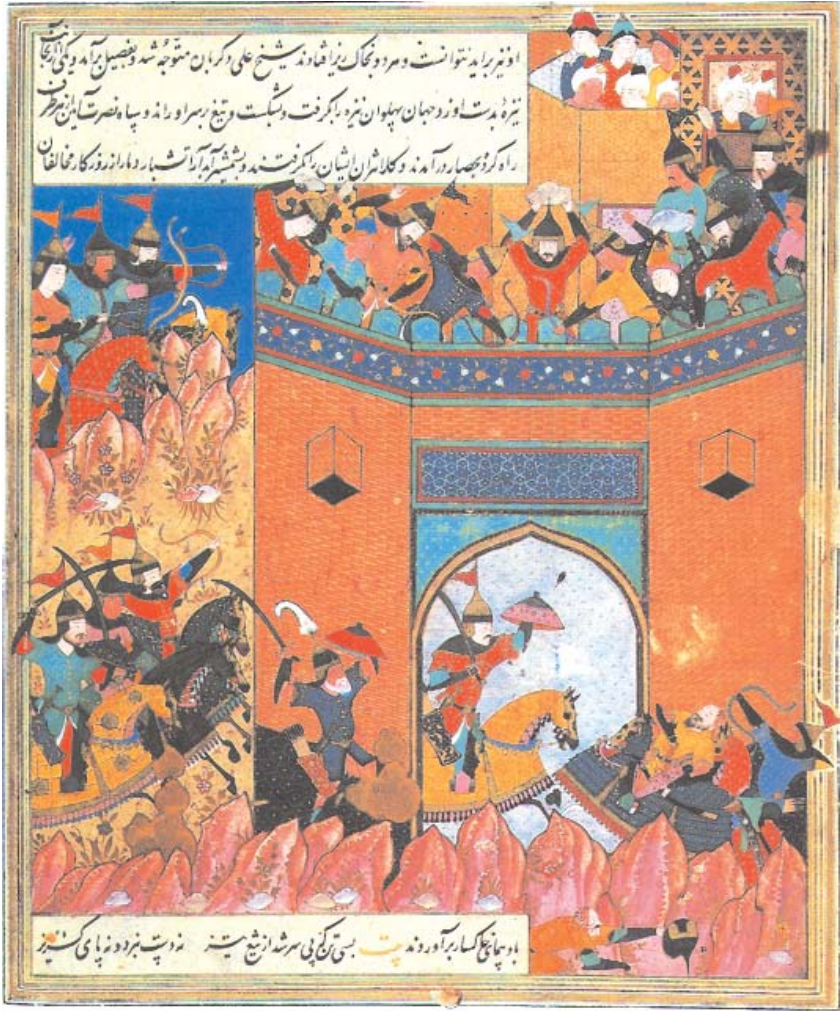 او نیز برآید نتوانست و مرد و بخاک ریز افتادند شیخ علی دکر بان متوجه شد و بفصیل برآمد و یکی از
نیزهٔ بدست او زد جهان پهلوان نیزه را گرفت و بشکست و تیغ بر سر او راند و سپاه نصرت آیین از هر طرف
راه کرده بحصار درآمدند و کلانتران ایشان را گرفتند و بشمشیر آبدار آتشبار دمار از روزگار مخالفان
خاکسار برآوردند بیت بسی ترک پی سر شد از تیغ تیز نه دست نبرد و نه پای گریز